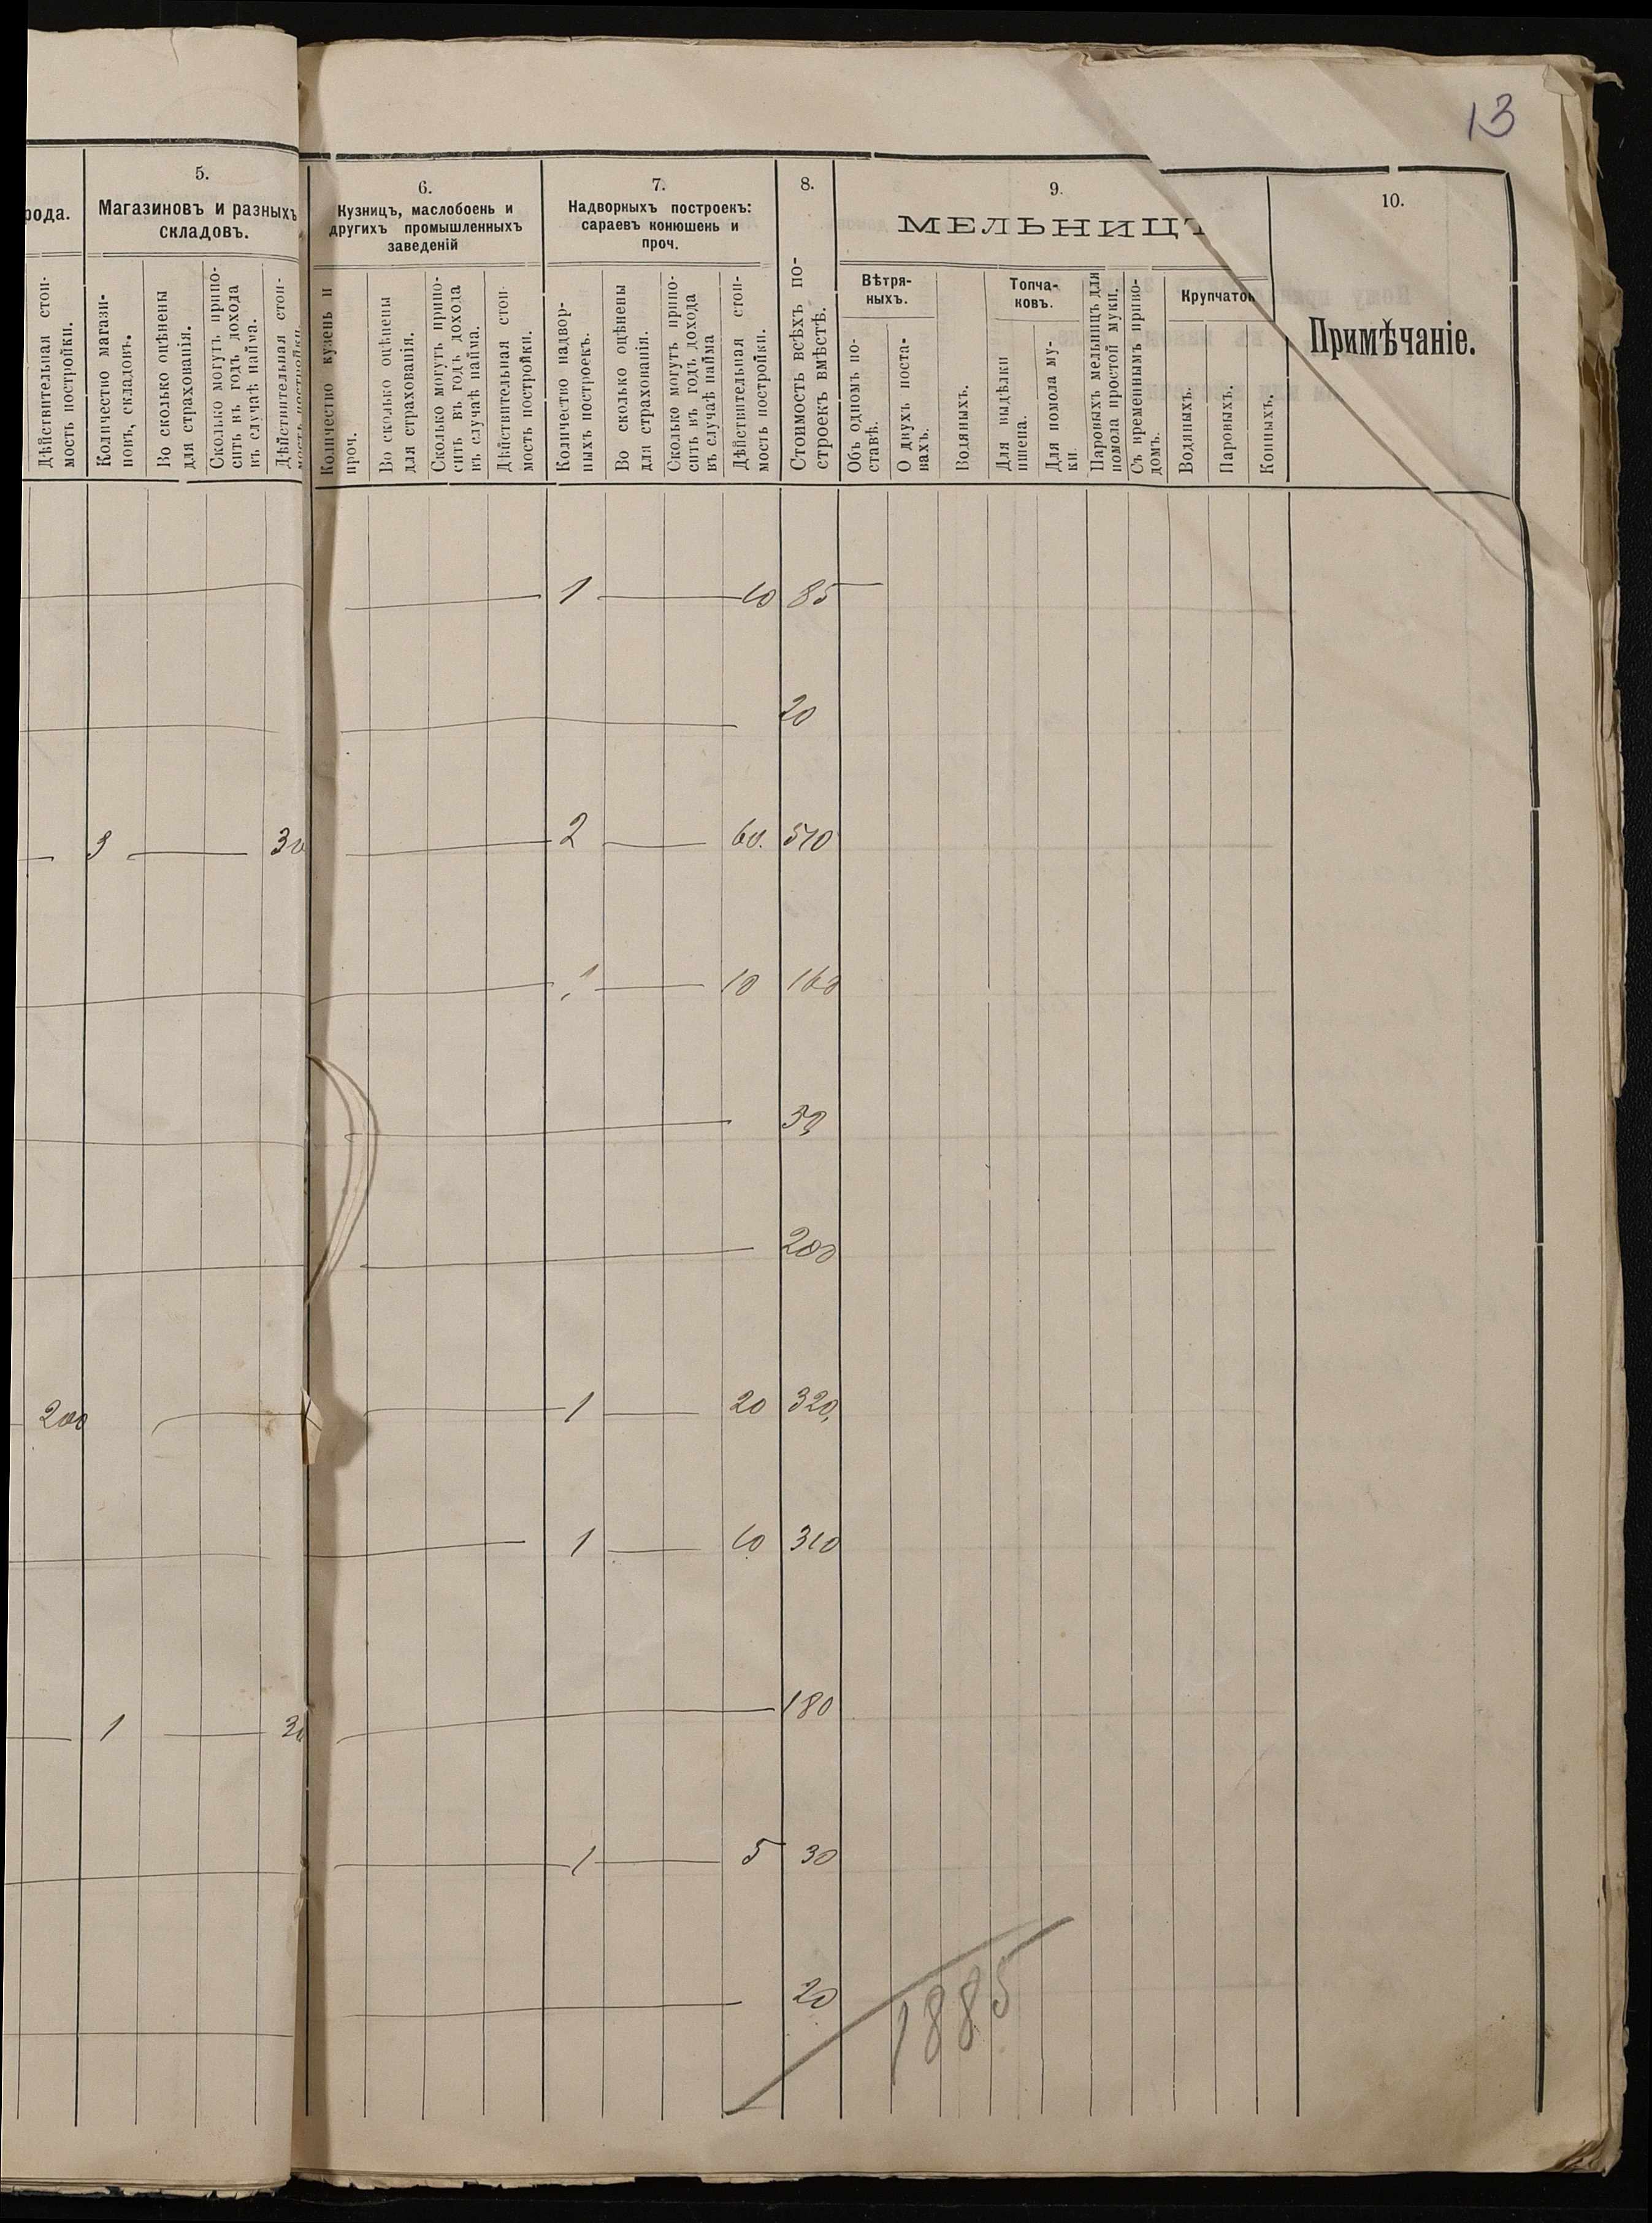 13
рода.
5.
Магазиновъ и разныхъ
складовъ.
6.
Кузницъ, маслобоень и
другихъ промышленныхъ
заведеній
7.
Надворныхъ построекъ:
сараевъ конюшень и
проч.
8.
9.
МЕЛЬНИЦЪ
10.
Примѣчаніе.
Дѣйствительная стои-
мость постройки.
Количество магази-
новъ, складовъ.
Во сколько оцѣнены
для страхованія.
Сколько могутъ прино-
сить въ годъ дохода
въ случаѣ найма.
Дѣйствительная стои-
мость постройки
Количество кузень и
проч.
Во сколько оцѣнены
для страхованія.
Сколько могутъ прино-
сить въ годъ дохода
въ случаѣ найма.
Дѣйствительная стои-
мость постройки.
Количество надвор-
ныхъ построекъ.
Во сколько оцѣнены
для страхованія.
Сколько могутъ прино-
сить въ годъ дохода
въ случаѣ найма
Дѣйствительная стои-
мость постройки.
Стоимость всѣхъ по-
строекъ вмѣстѣ.
Вѣтря-
ныхъ.
Объ одномъ по-
ставѣ.
О двухъ поста-
вахъ.
Водяныхъ.
Топча-
ковъ.
Для выдѣлки
пшена.
Для помола му-
ки.
Паровыхъ мельницъ для
помола простой муки.
Съ временнымъ приво-
домъ.
Крупчаток
Водяныхъ.
Паровыхъ.
Конныхъ.
1 10 85
20
3 30 2 60. 510
1 10 160
30
200
200 1 20 320,
1 10 310
1 30 180
1 5 30
20
1885